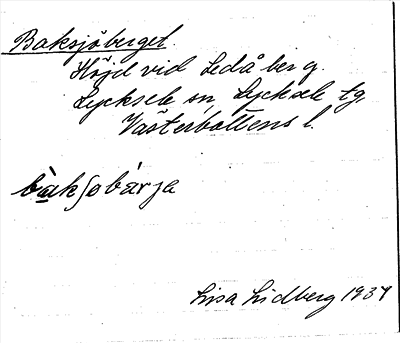 Baksjöberget.
Höjd vid Ledåberg.
Lycksele sn, Lycksele tg.
Västerbottens l.
bàkʃobárja
Lisa Lidberg 1939